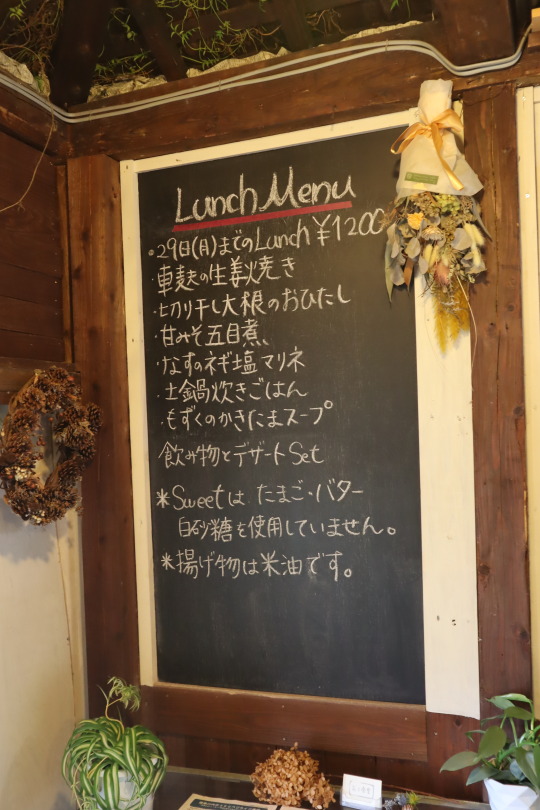 Lunch Menu
・29日(月)までのLunch ¥1200
・車麩の生姜焼き
・切り干し大根のおひたし
・甘みそ五目煮、
・なすのネギ塩マリネ
・土鍋炊きごはん
・もずくのかきたまスープ
飲み物とデザートSet
*Sweetは たまご・バター
白砂糖を使用していません。
*揚げ物は米油です。